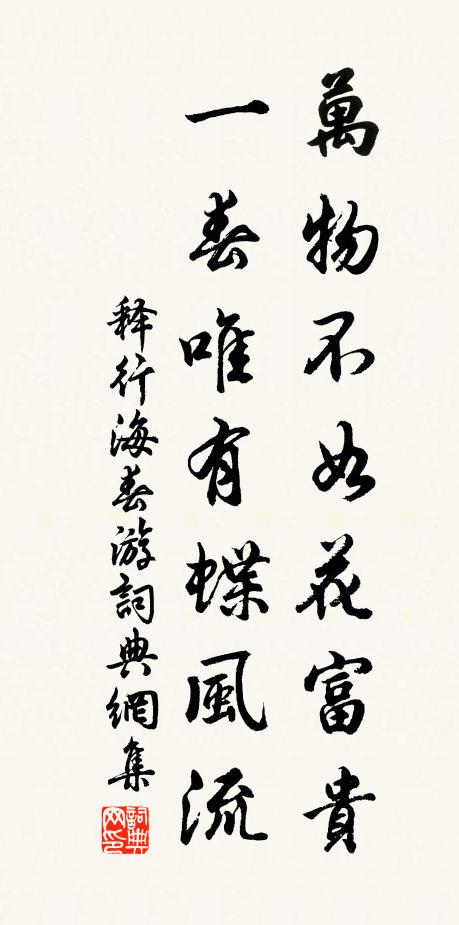 萬物不如花富貴
一春唯有蝶風流
释行海春游詞典網集
詞典网印